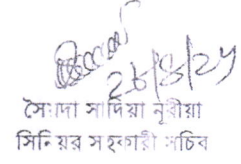 ২৮/৪/২৫
সৈয়দা সাদিয়া নূরীয়া
সিনিয়র সহকারী সচিব